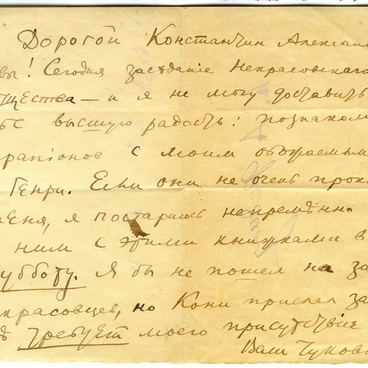 Дорогой Константин Алексан
вы! Сегодня заседание Некрасовского
щества — и я не могу доставить
бе высшую радость: познаком
рапионов с моим обожаемым
Генри. Если они не очень прокл
меня, я постараюсь непременно
ним с этими книжками в
субботу. Я бы не пошел на за
красовцев, но Кони прислал за
требует моего присутствие
Ваш Чуков